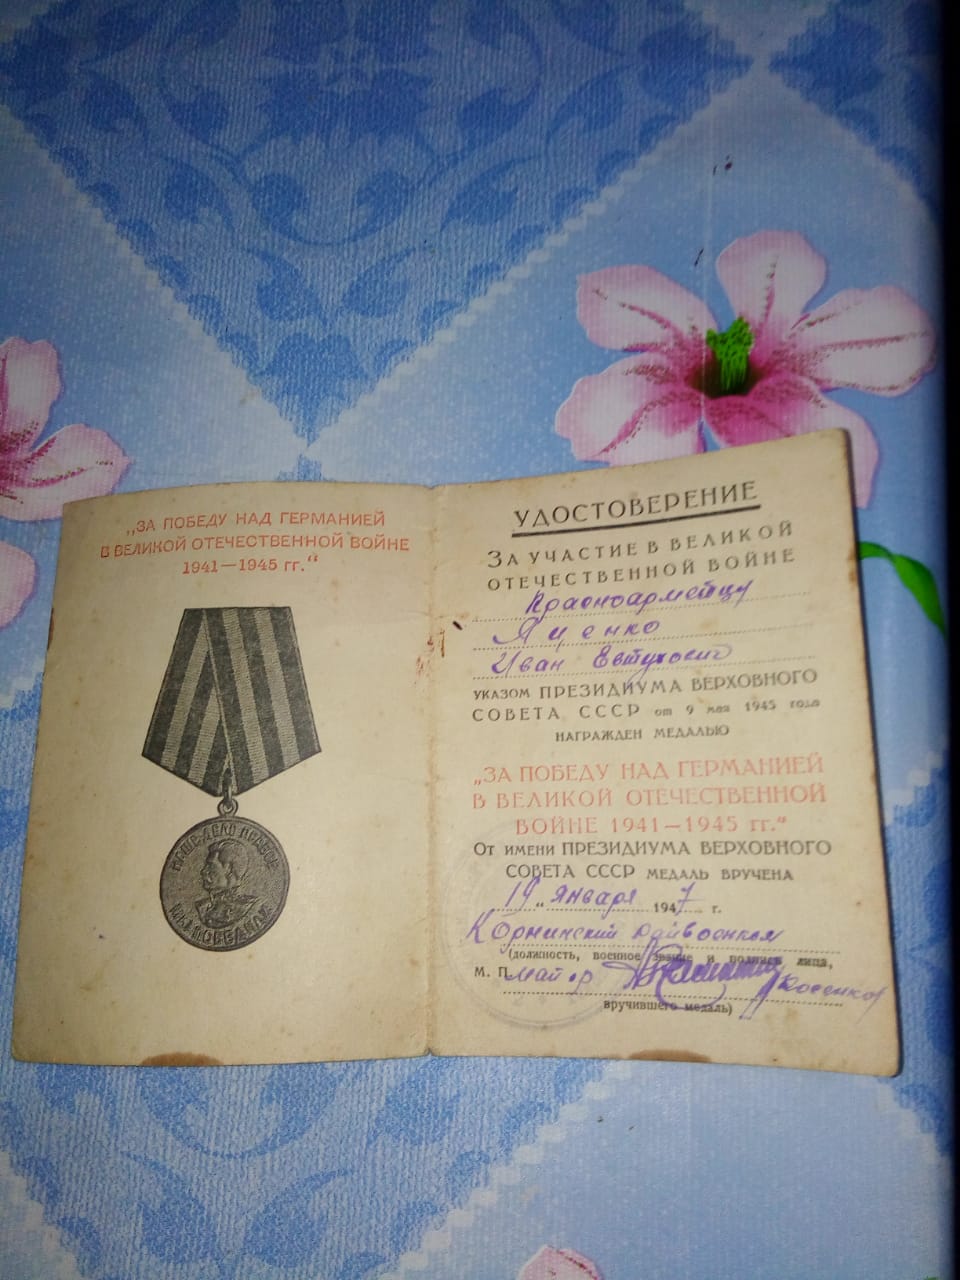 „ЗА ПОБЕДУ НАД ГЕРМАНИЕЙ
В ВЕЛИКОЙ ОТЕЧЕСТВЕННОЙ ВОЙНЕ
1941—1945 гг.“
НАШЕ ДЕЛО ПРАВОЕ
МЫ ПОБЕДИЛИ
УДОСТОВЕРЕНИЕ
ЗА УЧАСТИЕ В ВЕЛИКОЙ
ОТЕЧЕСТВЕННОЙ ВОЙНЕ
Красноармейцу
Яценко
Иван
УКАЗОМ ПРЕЗИДИУМА ВЕРХОВНОГО
СОВЕТА СССР от 9 мая 1945 года
НАГРАЖДЕН МЕДАЛЬЮ
„ЗА ПОБЕДУ НАД ГЕРМАНИЕЙ
В ВЕЛИКОЙ ОТЕЧЕСТВЕННОЙ
ВОЙНЕ 1941—1945 гг.“
ОТ ИМЕНИ ПРЕЗИДИУМА ВЕРХОВНОГО
СОВЕТА СССР МЕДАЛЬ ВРУЧЕНА
19 „ января 1947 г.
Корнинский Райвоенком
(должность, военное звание и подпись лица,
М. П. майор
вручившего медаль)